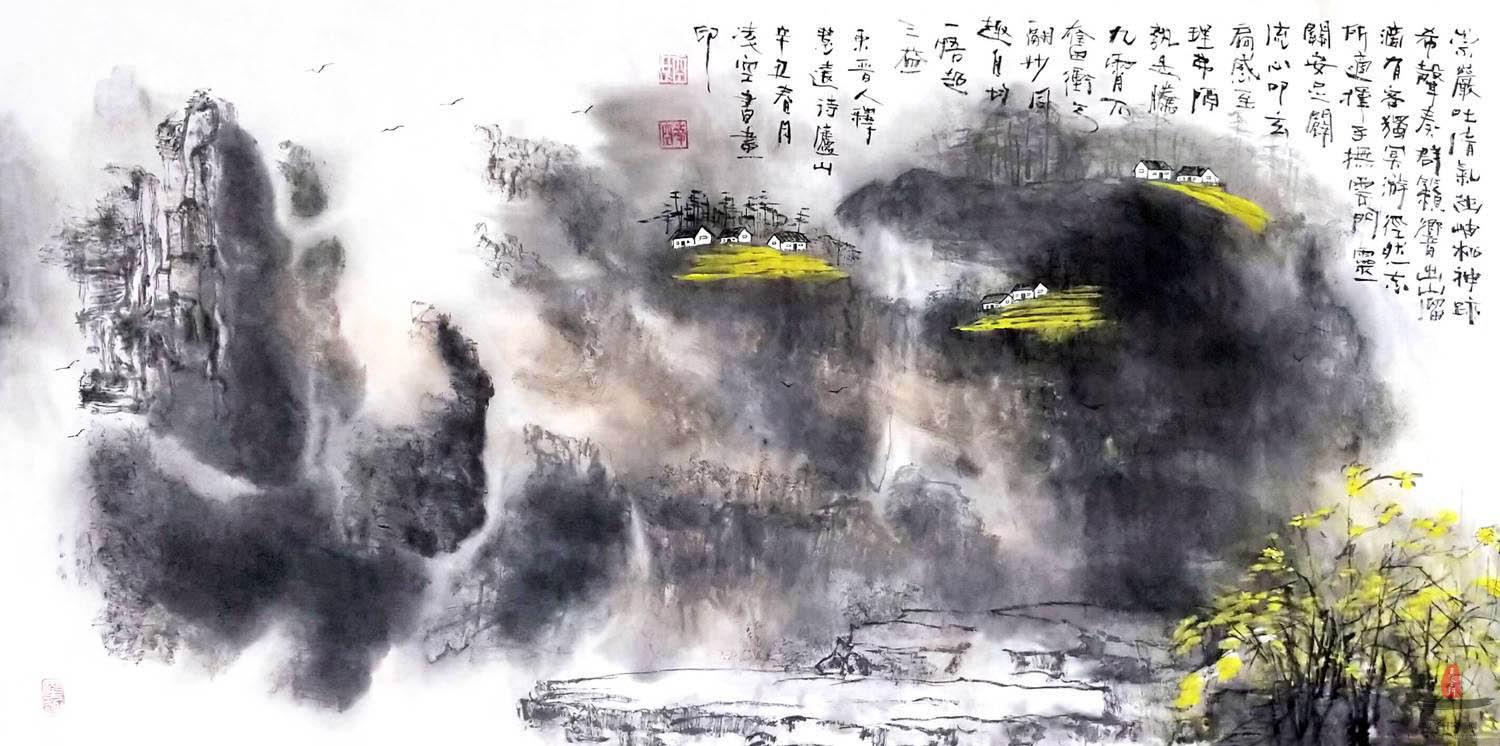 崇巖吐清氣幽岫栖神跡
希聲奏群籟響出山溜
滴有客獨冥游徑然忘
所適揮手撫雲門靈
關安足闢
流心叩玄
扃感至
理弗隔
孰是騰
九霄不
奮衝天
翮妙同
趣自均
一悟超
三益
東晋人釋
慧遠诗廬山
辛丑春月
凌空書畫
印